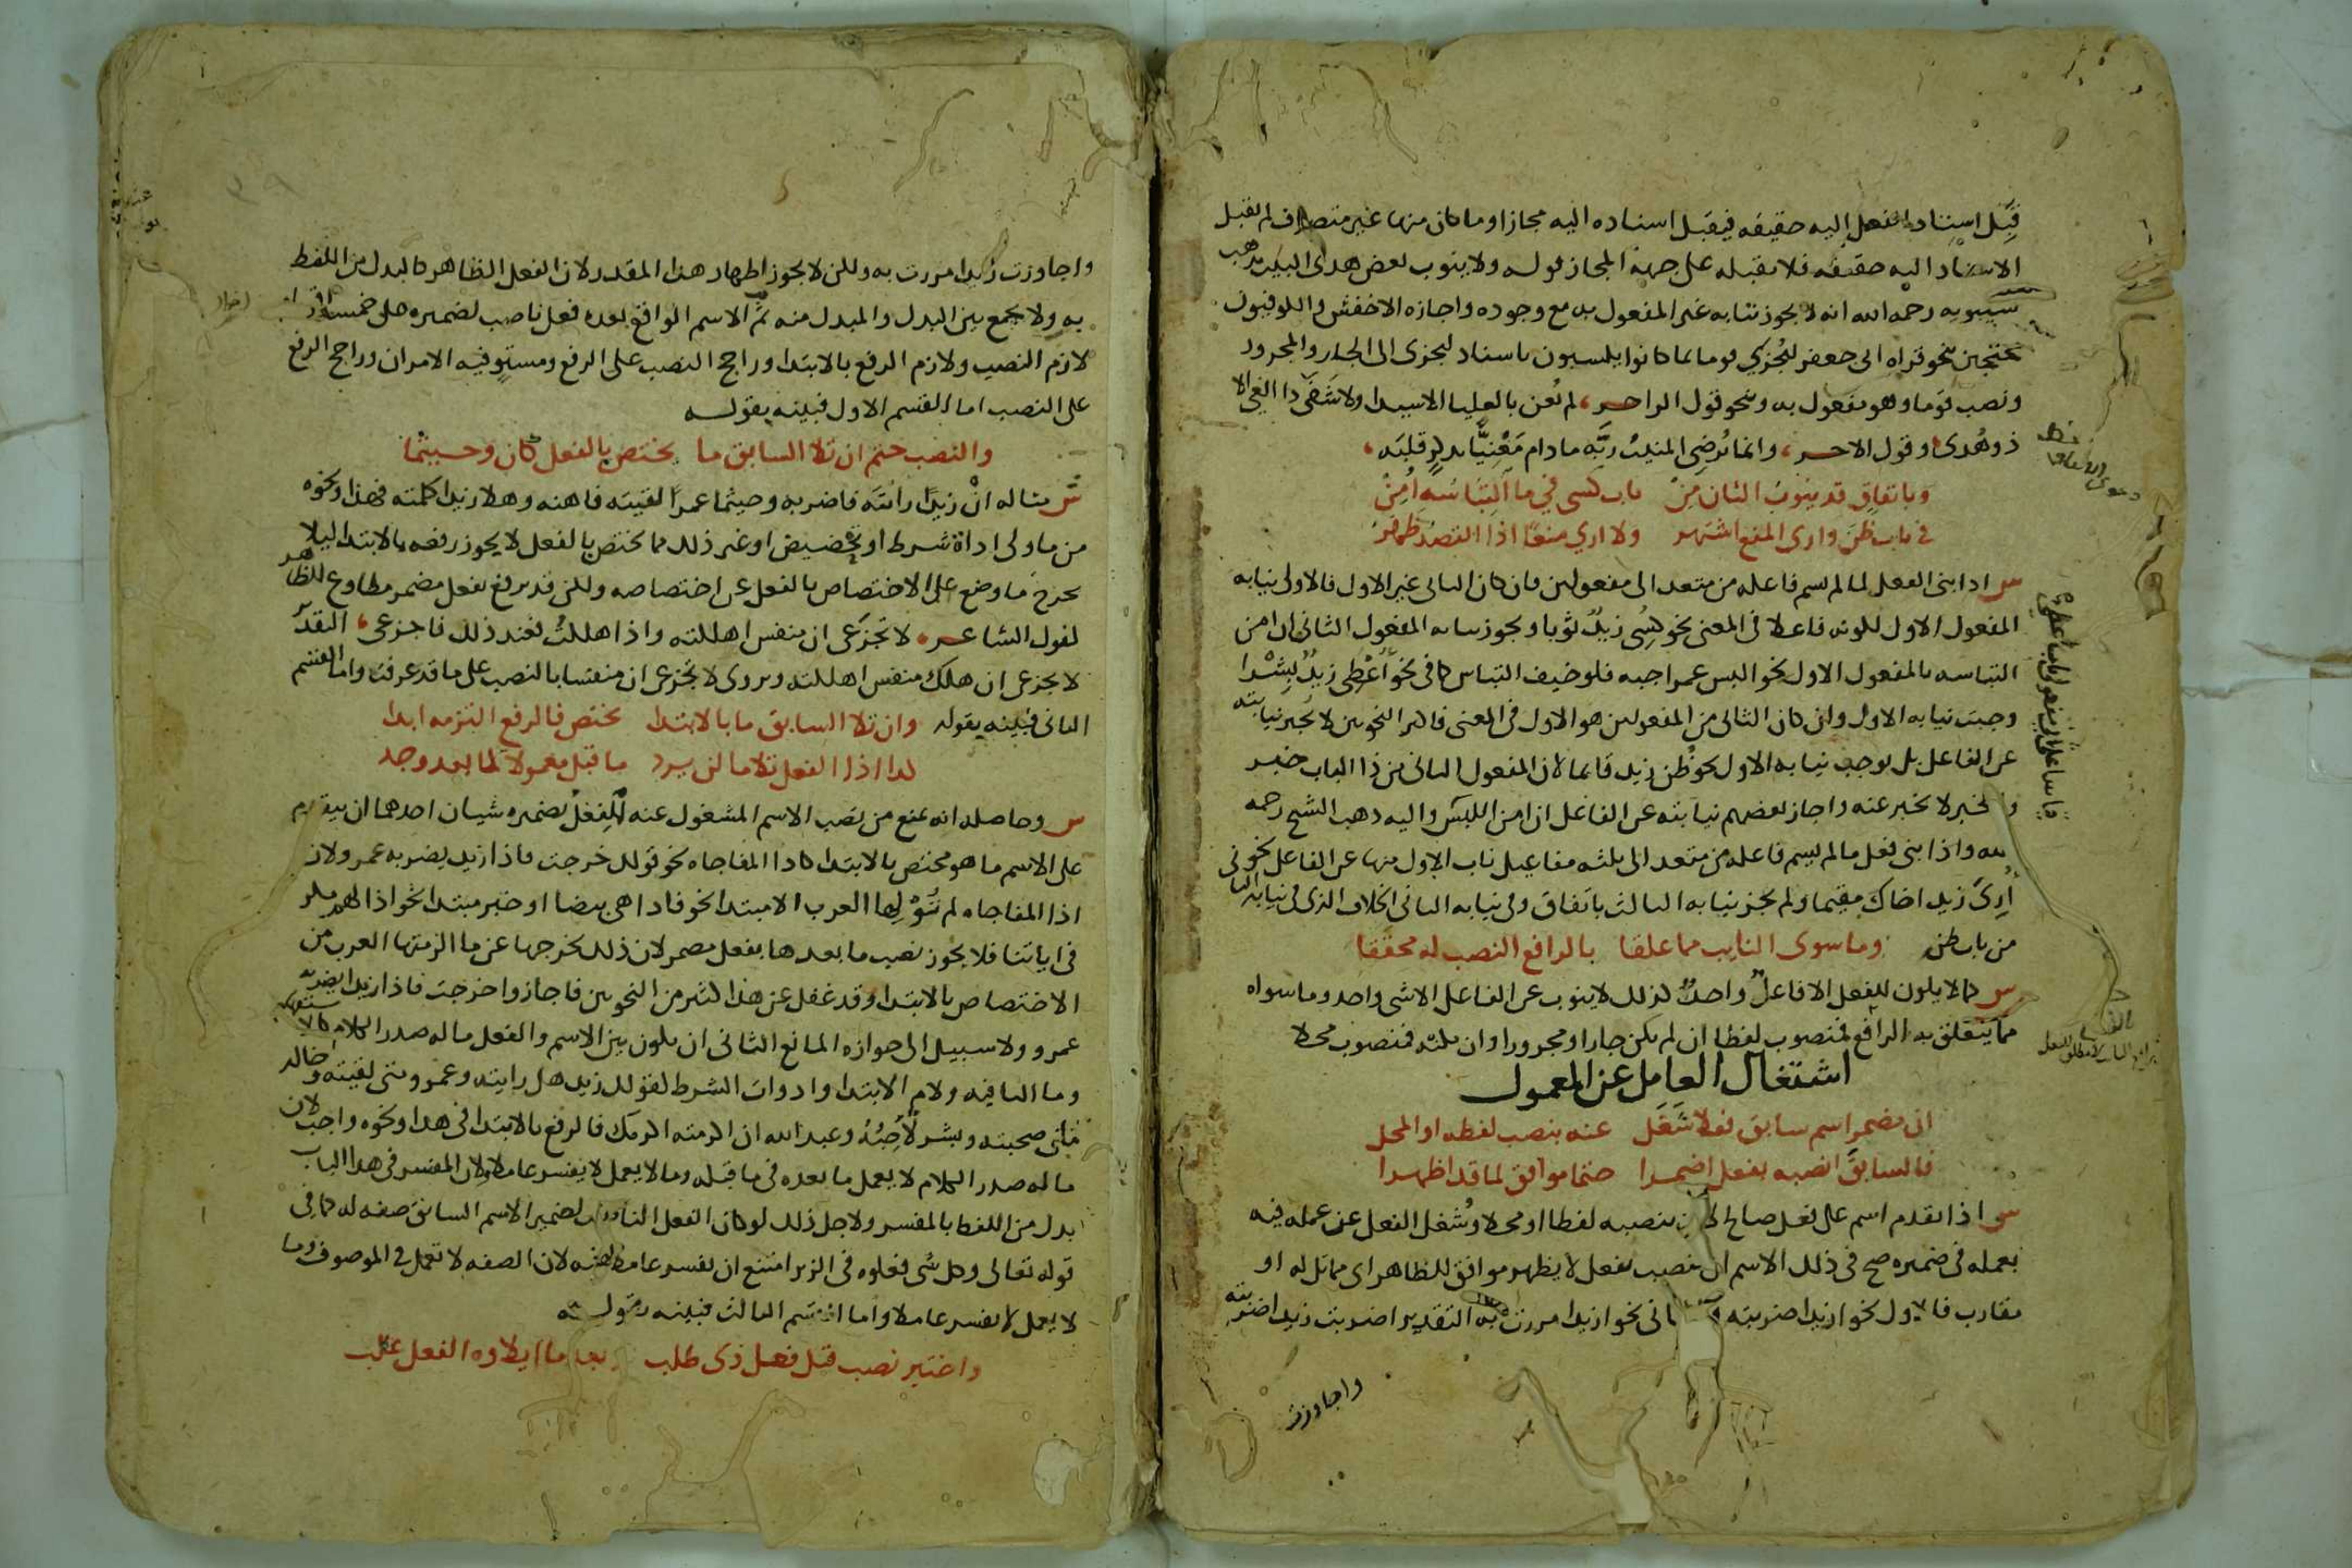 قبل اسناد الفعل اليه حقيقه فيقبل اسناده اليه مجازا وما كان منها غير متصرف لم يقبل
الاسناد اليه حقيقه فلا يقبله على جهة المجاز قوله ولا ينوب بعض هدى البيت مذهب
سيبويه رحمه الله انه لا يجوز نيابه غير المفعول به مع وجوده واجازه الاخفش والكوفيون
محتجين بنحو قراه ابى جعفر ليُجزَي قوما بما كانوا يكسبون باسناد ليجزى الى الجار والمجرور
ونصب قوما وهو مفعول به وبنحو قول الراجز لم يُعن بالعليا الا سيدا ولا شفى ذا الغي الا
ذو هُدى وقول الاخر وانما يُرضى المنيبُ ربَّه ما دام مَعْنِيًّا بذكر قلبَه
وباتفاق قد ينوبُ الثان مِنْ باب كسى في ما التباسُه اُمِنْ
فى باب ظن وارى المنع اشتهر ولا اري منعًا اذا القصدُ ظهر
س اذا بنى الفعل لما لم يسم فاعله من متعد الى مفعولين فان كان الثانى غير الاول فالاولى نيابه
المفعول الاول لكونه فاعلا فى المعنى نحو كُسِى زيدٌ ثوبا ويجوز نيابه المفعول الثانى ان امن
التباسه بالمفعول الاول نحو البس عمرا جبه فلو خيف التباس كما فى نحو اُعْطِى زيدٌ بِشْرا
وجبت نيابه الاول وان كان الثانى من المفعولين هو الاول فى المعنى فاكثر النحويين لا تجيز نيابته
عن الفاعل بل يوجب نيابه الاول نحو ظُن زيد قايما لان المفعول الثانى من ذا الباب خبر
والخبر لا يخبر عنه واجاز بعضهم نيابته عن الفاعل ان امن اللبس واليه ذهب الشيخ رحمه
الله واذا بنى فعل ما لم يسم فاعله من متعد الى ثلثه مفاعيل ناب الاول منها عن الفاعل نحو
اُرِىَ زيد اخاك مقيما ولم يجز نيابه الثالث باتفاق وفى نيابه الثانى الخلاف الذى فى نيابة الثانى
من باب ظن وما سوى النايب مما علقا بالرافع النصب له محققا
س كما لا يكون للفعل الا فاعلٌ واحدٌ كذلك لا ينوب عن الفاعل الا شى واحد وما سواه
مما يتعلق به الرافع فمنصوب لفظا ان لم يكن جارا ومجرورا وان يكنه فمنصوب محلا
اشتغال العامل عن المعمول
ان مضمر اسم سابق فعلا شَغَل عنه بنصب لفظه او المحل
فالسابق انصبه بفعل اضمرا حتما موافق لما قد اظهرا
س اذا تقدم اسم على فعل صالح لان ينصبه لفظا او محلا وشُغل الفعل عن عمله فيه
بعمله فى ضميره صح فى ذلك الاسم ان ينصب بفعل لا يظهر موافق للظاهر اى مماثل له او
مقارب فالاول نحو ازيدا ضربته والثانى نحو ازيدا مررت به التقدير اضربت زيدا ضربته
واجاوزت
واجاوزت زيدا مررت به ولكن لا يجوز اظهار هذا المقدر لان الفعل الظاهر كالبدل من اللفظ
به ولا يجمع بين البدل والمبدل منه ثم الاسم الواقع بعده فعل ناصب لضميره على خمسة اقسام
لازم النصب ولازم الرفع بالابتدا وراجح النصب على الرفع ومستو فيه الامران وراجح الرفع
على النصب اما القسم الاول فبينه بقوله
والنصب حتم ان تلا السابق ما يختص بالفعل كان وحيثما
ش مثاله ان زيدًا رايته فاضربه وحيثما عمرًا لقيته فاهنه وهلا زيدا كلمته فهذا ونحوه
من ما ولى اداة شرط او تحضيض او غير ذلك مما يختص بالفعل لا يجوز رفعه بالابتدا ليلا
يخرج ما وضع على الاختصاص بالفعل عن اختصاصه ولكن قد يرفع بفعل مضمر مطاوع للظاهر
كقول الشاعر لا تجزَعى ان منفس اهلكته واذا هلكتُ فعند ذلك فاجزعى التقدير
لا تجزعى ان هلك منفس اهلكته ويروى لا تجزعى ان منفسا بالنصب على ما قد عرفت واما القسم
الثانى فبينه بقوله وان تلا السابق ما بالابتدا يختص فالرفع التزمه ابدا
كذا اذا الفعل تلا ما لن يرد ما قبل معمولا لما بعد وجد
س وحاصله انه يمنع من نصب الاسم المشغول عنه الفعل بضميره شيان احدهما ان يتقدم
على الاسم ما هو مختص بالابتدا كاذا المفاجاه نحو قولك خرجت فاذا زيد يضربه عمرو لان
اذا المفاجاه لم تُوْلِها العرب الا مبتدا نحو فاذا هى بيضا او خبر مبتدا نحو اذا لهم مكر
فى اياتنا فلا يجوز نصب ما بعدها بفعل مضمر لان ذلك يخرجها عن ما الزمتها العرب من
الاختصاص بالابتدا وقد غفل عن هذا كثير من النحويين فاجازوا خرجت فاذا زيدا يضربه
عمرو ولا سبيل الى جوازه المانع الثانى ان يكون بين الاسم والفعل ما له صدر الكلام كالاستفهام
وما النافيه ولام الابتدا وادوات الشرط كقولك زيد هل رايته وعمرو متى لقيته وخالد
ما صحبته وبشر لأُحِبُّهُ وعبد الله ان اكرمته اكرمك فالرفع بالابتدا فى هذا ونحوه واجب لان
ما له صدر الكلام لا يعمل ما بعده فى ما قبله وما لا يعمل لا يفسر عاملا لان المفسر فى هذا الباب
بدل من اللفظ بالمفسر ولاجل ذلك لو كان الفعل الناصب لضمير الاسم السابق صفه له كما فى
قوله تعالى وكل شى فعلوه فى الزبر امتنع ان يفسر عاملا فيه لان الصفه لا تعمل فى الموصوف وما
لا يعمل لا يفسر عاملا واما القسم الثالث فبينه بقوله
واختير نصب قبل فعل ذى طلب وبعد ما ايلاوه الفعل غلب